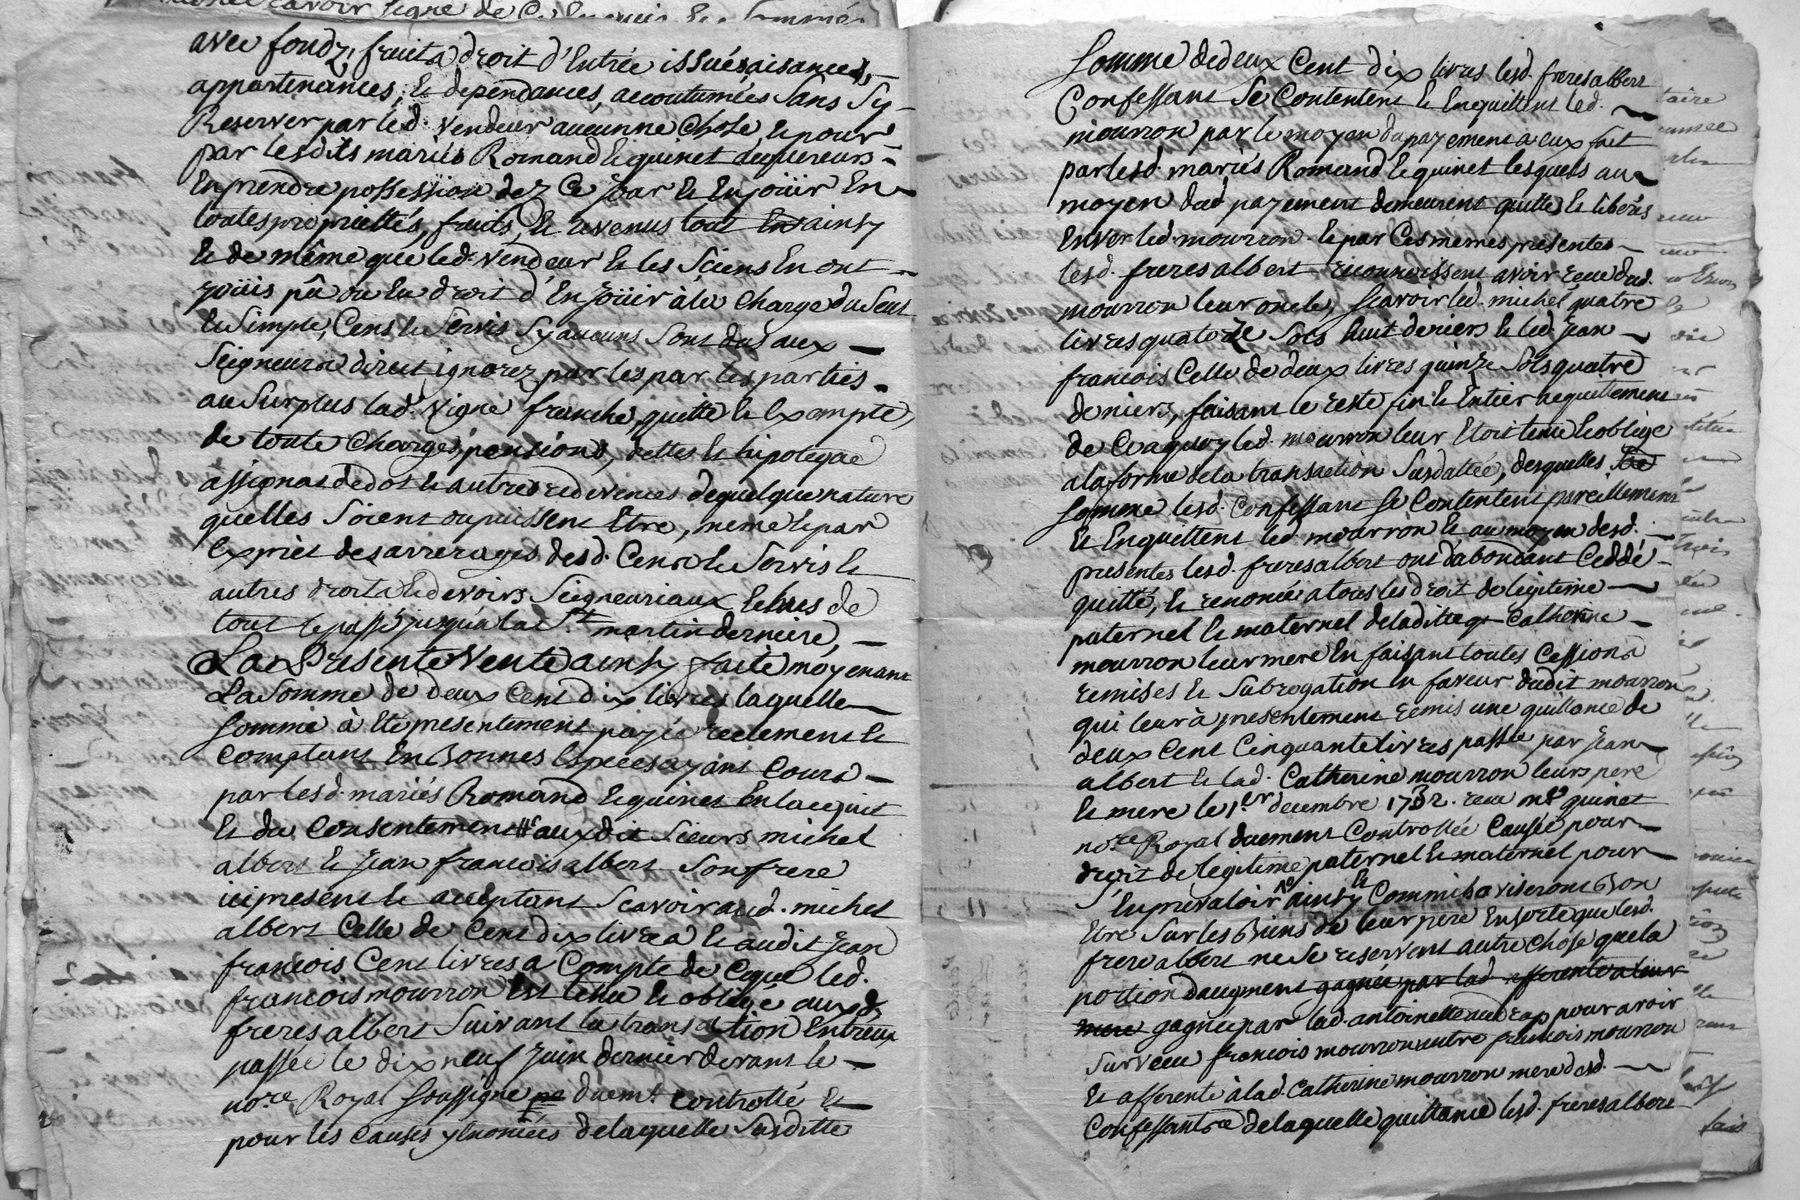 avec fondz, fruits droit d'Entrée issuës aisances,
appartenances, & dependances, accoutumées sans s'y
Reserver par led. vendeur aucunne chose, & pour
par lesdits mariés Romand & quinet acquereurs
En prendre possession dez ce jour & En joüir En
toutes proprietés, fruits, & revenus tout ainsy
& de même que led. vendeur & les Sciens En ont
joüis pû ou eu droit d'En joüir à la charge du seul
& simple, Cens & Servis sy aucuns sont dus aux
Seigneurs direct ignorez par les par les parties
au surplus lad. vigne franche, quitte & Exempte,
de toute charges, pensions, dettes & hipoteque
assignas de dot & autres redevences de quelque nature
quelles soient ou puissent Etre, meme & par
Exprès des arrerages desd. Cens & Servis &
autres droits & devoirs Seigneuriaux Echus de
tout le passé jusqu'a la St martin derniere,
La Presente Vente ainsy faite moyenant
La somme de deux cent dix livres laquelle
somme à été presentement payée reelement &
comptant En Bonnes Especes ayant cours
par lesd. mariés Romand & quinet En lacquit
& du consentement auxdit Sieurs michel
albert & Jean francois albert son frere
ici present & acceptant Scavoir aud. michel
albert celle de cent dix livres & audit Jean
francois cent livres a compte de ce que led.
francois mourron Est tenu & obligé auxd.
freres albert suivant la transaction Entreux
passée le dix neuf Juin dernier devant le
nore. Royal soussigné duemt. controllé &
pour les causes y Enoncées de laquelle susditte
somme de deux cent dix livres lesd. freres albert
Confessant se contentent & Enquittent led.
mourron par le moyen du payement a eux fait
par lesd. mariés Romand & quinet lesquels au
moyen dud. payement demeurent quittes & liberés
Enver led. mourron & par ces memes presentes
lesd. freres albert reconnoissent avoir receu dud.
mourron leur oncle, Scavoir led. michel quatre
livres quatorze sols huit deniers & led Jean
francois celle de deux livres quinze sols quatre
deniers, faisant le reste fin & Entier acquittement
de ce a quoy led. mourron leur Etoit tenu & obligé
a la forme de la transaction susdattée, desquelles
somme lesd. confessant se contentent pareillement
& Enquittent led. mourron & au moyen desd.
presentes lesd. freres albert ont dabondant ceddé
quitté, & renoncé a tous les droit de legitime
paternel & maternel de laditte Catherine
mourron leur mere En faisant toutes cessions
remises & subrogation en faveur dudit mourron
qui leur à presentement remis une quittance de
deux cent cinquante livres passée par Jean
albert & lad. Catherine mourron leurs pere
& mere le 1er decembre 1732. receu mre quinet
nore Royal duement controllée causée pour
droit de legitime paternel & maternel pour
s'En prevaloir ainsy & comm'ils aviseront Bon
Etre sur les Biens de leur pere En sorte que lesd.
frere albert ne se reservent autre chose que la
portion daugment gagnée par lad. afferente a leur
mere gagnée par lad. antoinette pour avoir
survecu francois mourron autre francois mourron
& afferente à lad. Catherine mourron mere desd.
confessant de laquelle quittance lesd. freres albert